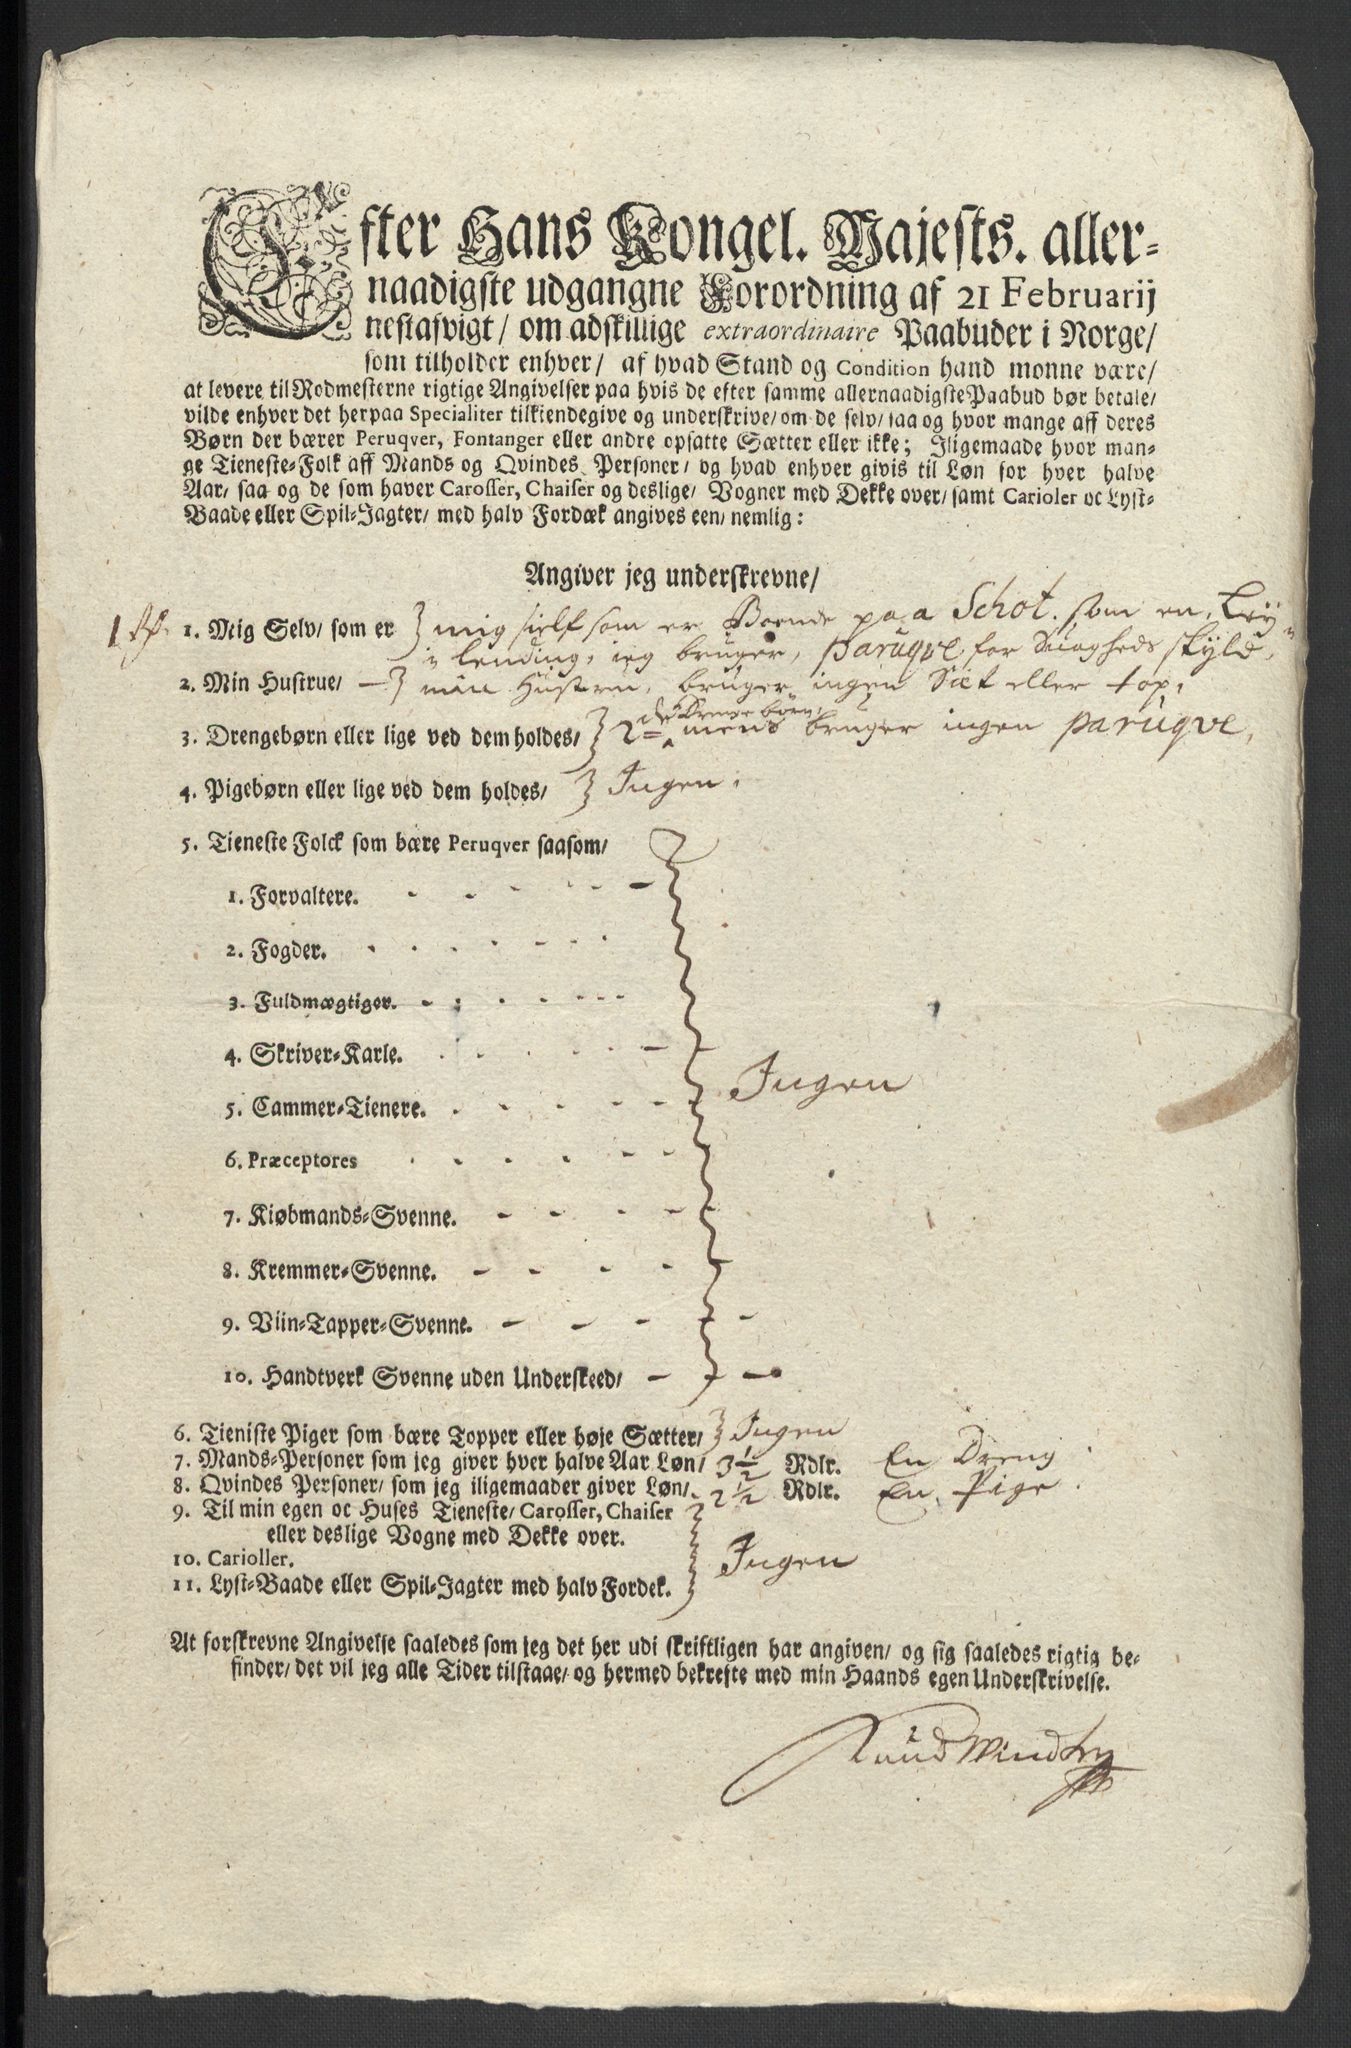 Efter Hans Kongel. Majests. aller-
naadigste udgangne Forordning af 21 Februarij
nestafvigt/ om adskillige extraordinaire Paabuder i Norge/
som tilholder enhver/ af hvad Stand og Condition hand monne være/
at levere til Rodmesterne rigtige Angivelser paa hvis de efter samme allernaadigste Paabud bør betale/
vilde enhver det herpaa Specialiter tilkiendegive og underskrive/ om de selv/ saa og hvor mange aff deres
Børn der bærer Peruqver, Fontanger eller andre opsatte Sætter eller ikke; Jligemaade hvor man-
ge Tieneste-Folk aff Mands og Qvindes Personer/ og hvad enhver givis til Løn for hver halve
Aar/ saa og de som haver Carosser, Chaiser og deslige/ Vogner med Dekke over/ samt Carioler oc Lyst-
Baade eller Spil-Jagter/ med halv Fordæk angives een/ nemlig:
Angiver jeg underskrevne/
1. Mig Selv/ som er mig sielf som er Boende paa Schot. som en Ley
lending, ieg bruger, parüqve for Suagheds skyld,
2. Min Hustrue/ min Hustru, bruger ingen Sæt eller top,
3. Drengebørn eller lige ved dem holdes/ 2de Drenge børn, mens bruger ingen parüqve,
4. Pigebørn eller lige ved dem holdes/ Ingen.
5. Tieneste Folck som bære Peruqver saasom/
1. Forvaltere.
2. Fogder.
3. Fuldmægtiger.
4. Skriver-Karle.
5. Cammer-Tienere. Ingen
6. Præceptores
7. Kiøbmands-Svenne.
8. Kremmer-Svenne.
9. Viin-Tapper-Svenne.
10. Handtverk Svenne uden Underskeed/
6. Tieniste Piger som bære Topper eller høje Sætter/ Ingen
7. Mands-Personer som jeg giver hver halve Aar Løn/ 3½ Rdlr. En Dreng
8. Qvindes Personer/ som jeg iligemaader giver Løn/ 2½ Rdlr. En Pige
9. Til min egen oc Huses Tieneste/ Carosser, Chaiser
eller deslige Vogne med Dekke over.
10. Carioller. Ingen
11. Lyst-Baade eller Spil-Jagter med halv Fordek.
At forskrevne Angivelse saaledes som jeg det her udi skriftligen har angiven/ og sig saaledes rigtig be-
finder/ det vil jeg alle Tider tilstaae/ og hermed bekrefte med min Haands egen Underskrivelse.
Knüd